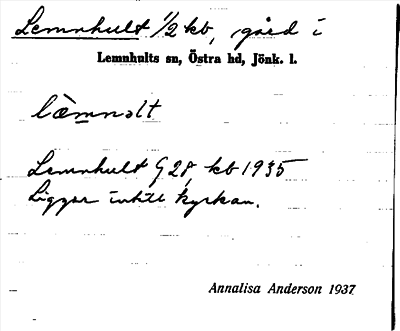 Lemnhult 1/2 kb, gård i
Lemnhults sn, Östra hd, Jönk. l.
lèmnəlt
Lemnhult G 28, kb 1935
Ligger intill kyrkan.
Annalisa Anderson 1937